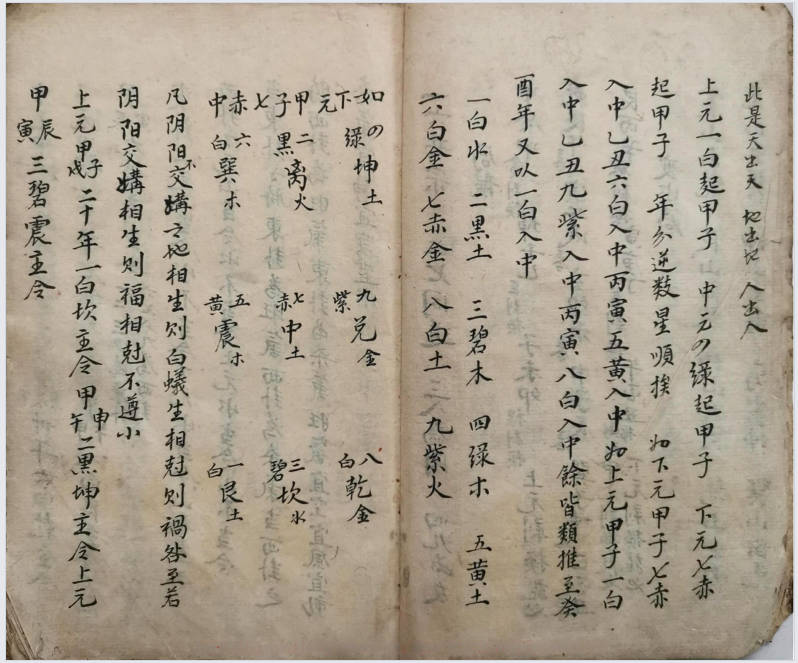 此是天出天 地出地 人出人
上元一白起甲子 中元四绿起甲子 下元七赤
起甲子 年分逆数星順挨 如下元甲子七赤
入中乙丑六白入中丙寅五黄入中如上元甲子一白
入中乙丑九紫入中丙寅八白入中餘皆類推至癸
酉年又以一白入中
一白水 二黑土 三碧木 四绿木 五黄土
六白金 七赤金 八白土 九紫火
如四绿坤土 九紫兑金 八白乾金
下元甲子七赤中 二黑离火 七赤中土 三碧坎水
六白巽木 五黄震木 一白艮土
凡阴阳不交媾之地相生则白蟻生相尅则禍咎至若
阴阳交媾相生则福相尅不遵小
上元甲子戌二十年一白坎主令甲申午二黑坤主令上元
甲辰寅三碧震主令